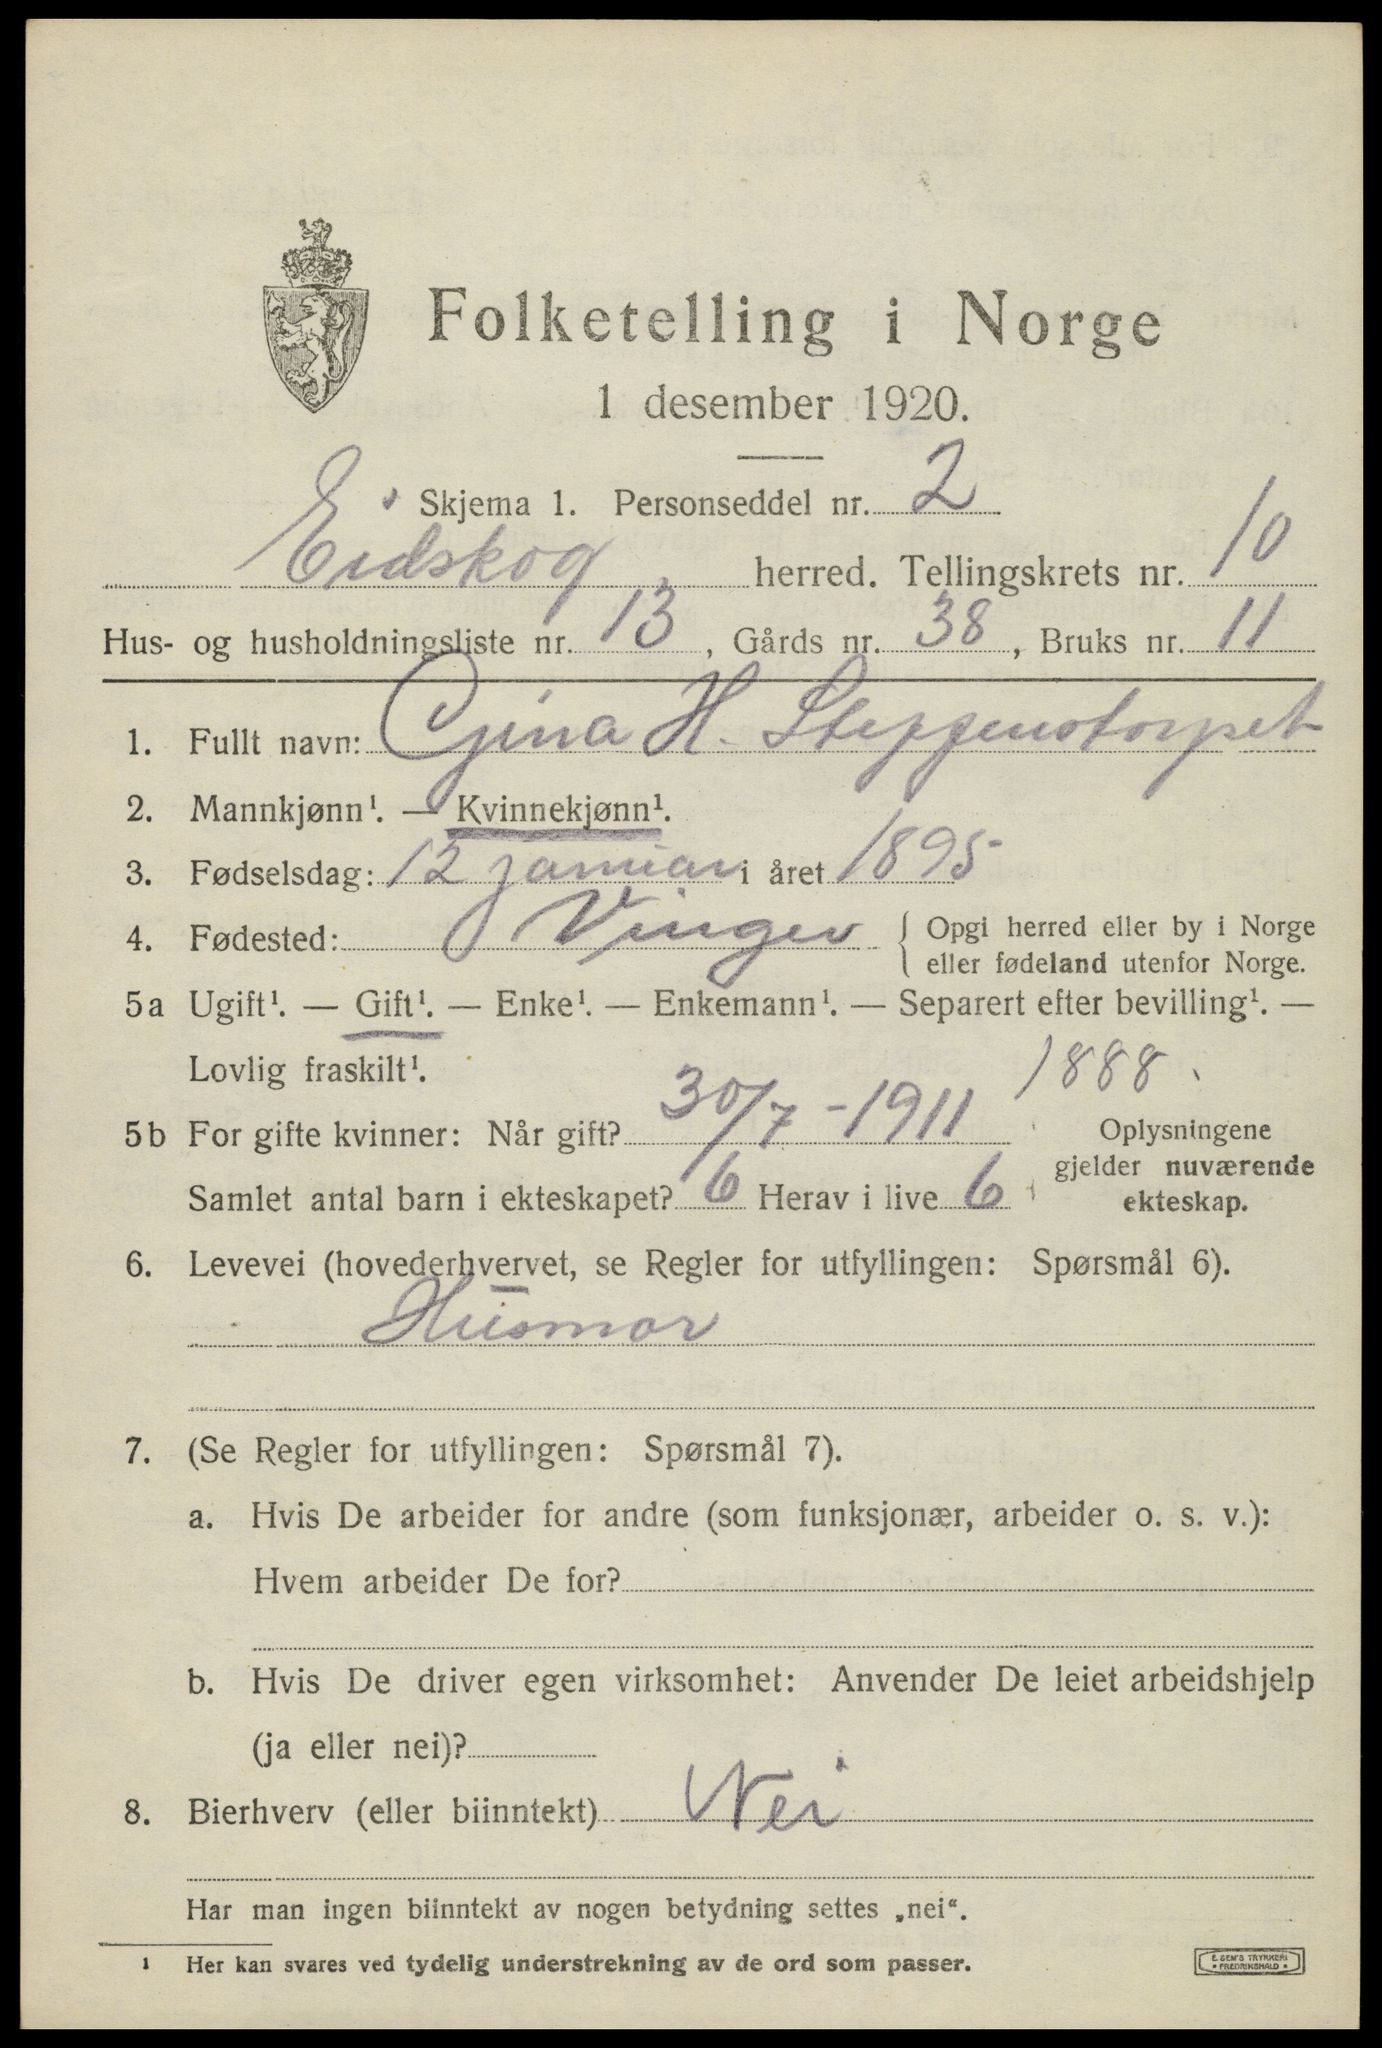 Folketelling i Norge
1 desember 1920.
Skjema 1. Personseddel nr. 2
Eidskog herred. Tellingskrets nr. 10
Hus- og husholdningsliste nr. 13, Gårds nr. 38, Bruks nr. 11
1. Fullt navn: Gjina H. Steppenstorpet
2. Mannkjønn¹. — Kvinnekjønn¹.
3. Fødselsdag: 12 januar i året 1895
4. Fødested: Vinger { Opgi herred eller by i Norge
eller fødeland utenfor Norge.
5a Ugift¹. — Gift¹. — Enke¹. — Enkemann¹. — Separert efter bevilling¹. —
Lovlig fraskilt¹.
1888.
5b For gifte kvinner: Når gift? 30/7 - 1911
Samlet antal barn i ekteskapet? 6 Herav i live 6
Oplysningene
gjelder nuværende
ekteskap.
6. Levevei (hovederhvervet, se Regler for utfyllingen: Spørsmål 6).
Husmor
7. (Se Regler for utfyllingen: Spørsmål 7).
a. Hvis De arbeider for andre (som funksjonær, arbeider o. s. v.):
Hvem arbeider De for?
b. Hvis De driver egen virksomhet: Anvender De leiet arbeidshjelp
(ja eller nei)?
8. Bierhverv (eller biinntekt) Nei
Har man ingen biinntekt av nogen betydning settes „nei“.
¹ Her kan svares ved tydelig understrekning av de ord som passer.
E. SEM'S TRYKKERI
FREDRIKSHALD